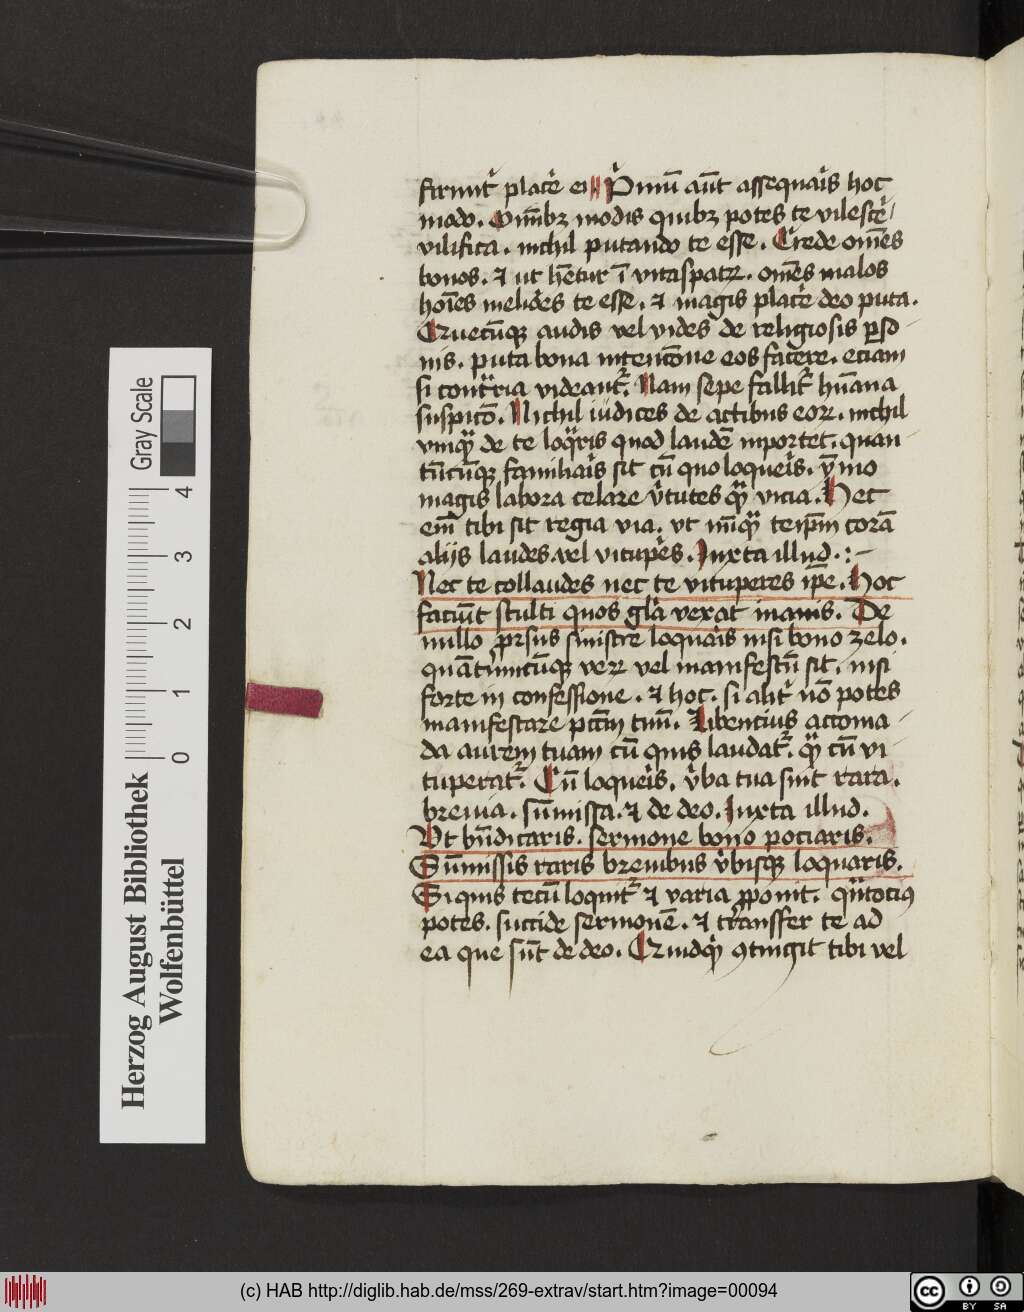 firmit᷑ placē ei Primū aūt assequar̄is hoc
modo. Om̄ibꝫ modis quibꝫ potes te vilescē
vilifica. nichil putando te esse. Crede om̄es
bonos. ⁊ ut hētur ī vitaspatꝝ. om̄es malos
hoīes meliōes te esse. ⁊ magis placēe deo puta.
audis vel vides de religiosis ꝑso-
nis. puta bona intencōne eos facere. eciam
si cont̃ria videant᷑. Nam sepe fallit᷑ hūana
suspicō. Nichil iudices de actibus eoꝝ. nichil
vnqᷓ de te loqᷓris quod laudē inportet. quan-
tūcūqꝫ familiar̄is sit cū quo loqueris. ymo
magis labora celare v̄tutes qᷓ vicia. Hec
em̄ tibi sit regia via. vt nūqᷓ teip̄m corā
alijs laudes. vel vitupēs. Iuxta illud. :-
Nec te collaudes nec te vituperes ip̄e. Hoc
faciūt stulti quos gla᷑ vexat inanis. De
nullo ꝓrsus sinistre loquar̄is nisi bono zelo.
quātūcūqꝫ veꝝ vel manifestū sit. nisi
forte in confessione. ⁊ hoc. si alit᷑ nō potes
manifestare pctm̄ tuū. Libencius accoma-
da aurem tuam cū quis laudat᷑. qᷓ cū vi-
tuperat᷑. Cū loquer̄is. v̄ba tua sint rara.
breuia. sūmissa. ⁊ de deo. Iuxta illud.
Vt bn̄dicaris. sermone bono pociaris.
Sūmissis raris breuibus v̄bisqꝫ loquaris.
Si quis tecū loquit᷑ ⁊ varia ꝓponit. qᷓntocius
potes. succide sermonē. ⁊ transfer te ad
ea que sūt de deo. ꝯtingit tibi vel
Gray Scale
4
3
2
1
0
Herzog August Bibliothek
Wolfenbüttel
(c) HAB http://diglib.hab.de/mss/269-extrav/start.htm?image=00094
cc
BY SA